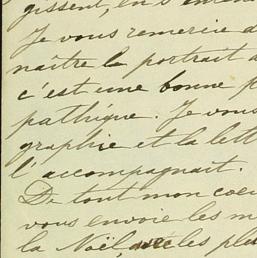 gissent, en s'
Je vous remercie d
naître le portrait a
c'est une bonne p
pathique. Je vous
graphie et la lett
l'accompagnait.
De tout mon coeu
vous envoie les m
la Noël, avec les plu